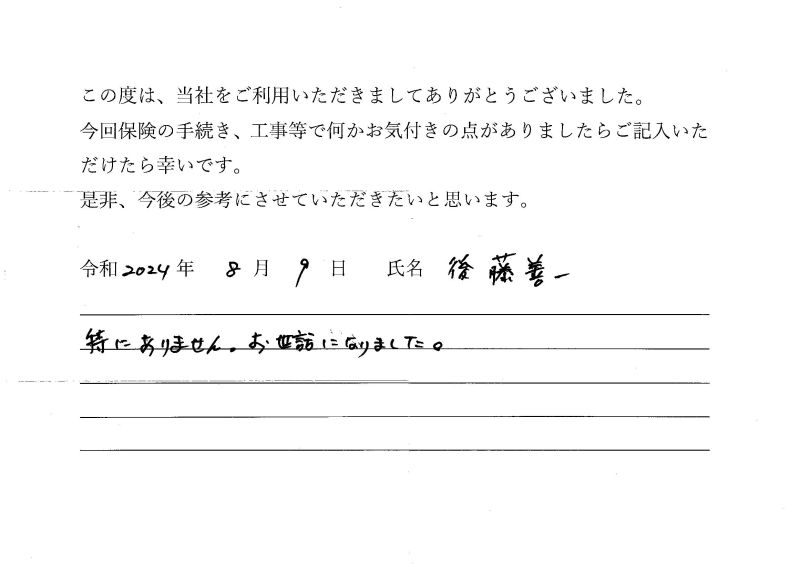 この度は、当社をご利用いただきましてありがとうございました。
今回保険の手続き、工事等で何かお気付きの点がありましたらご記入いた
だけたら幸いです。
是非、今後の参考にさせていただきたいと思います。
令和2024年 8月 9日 氏名 後藤善一
特にありません。お世話になりました。